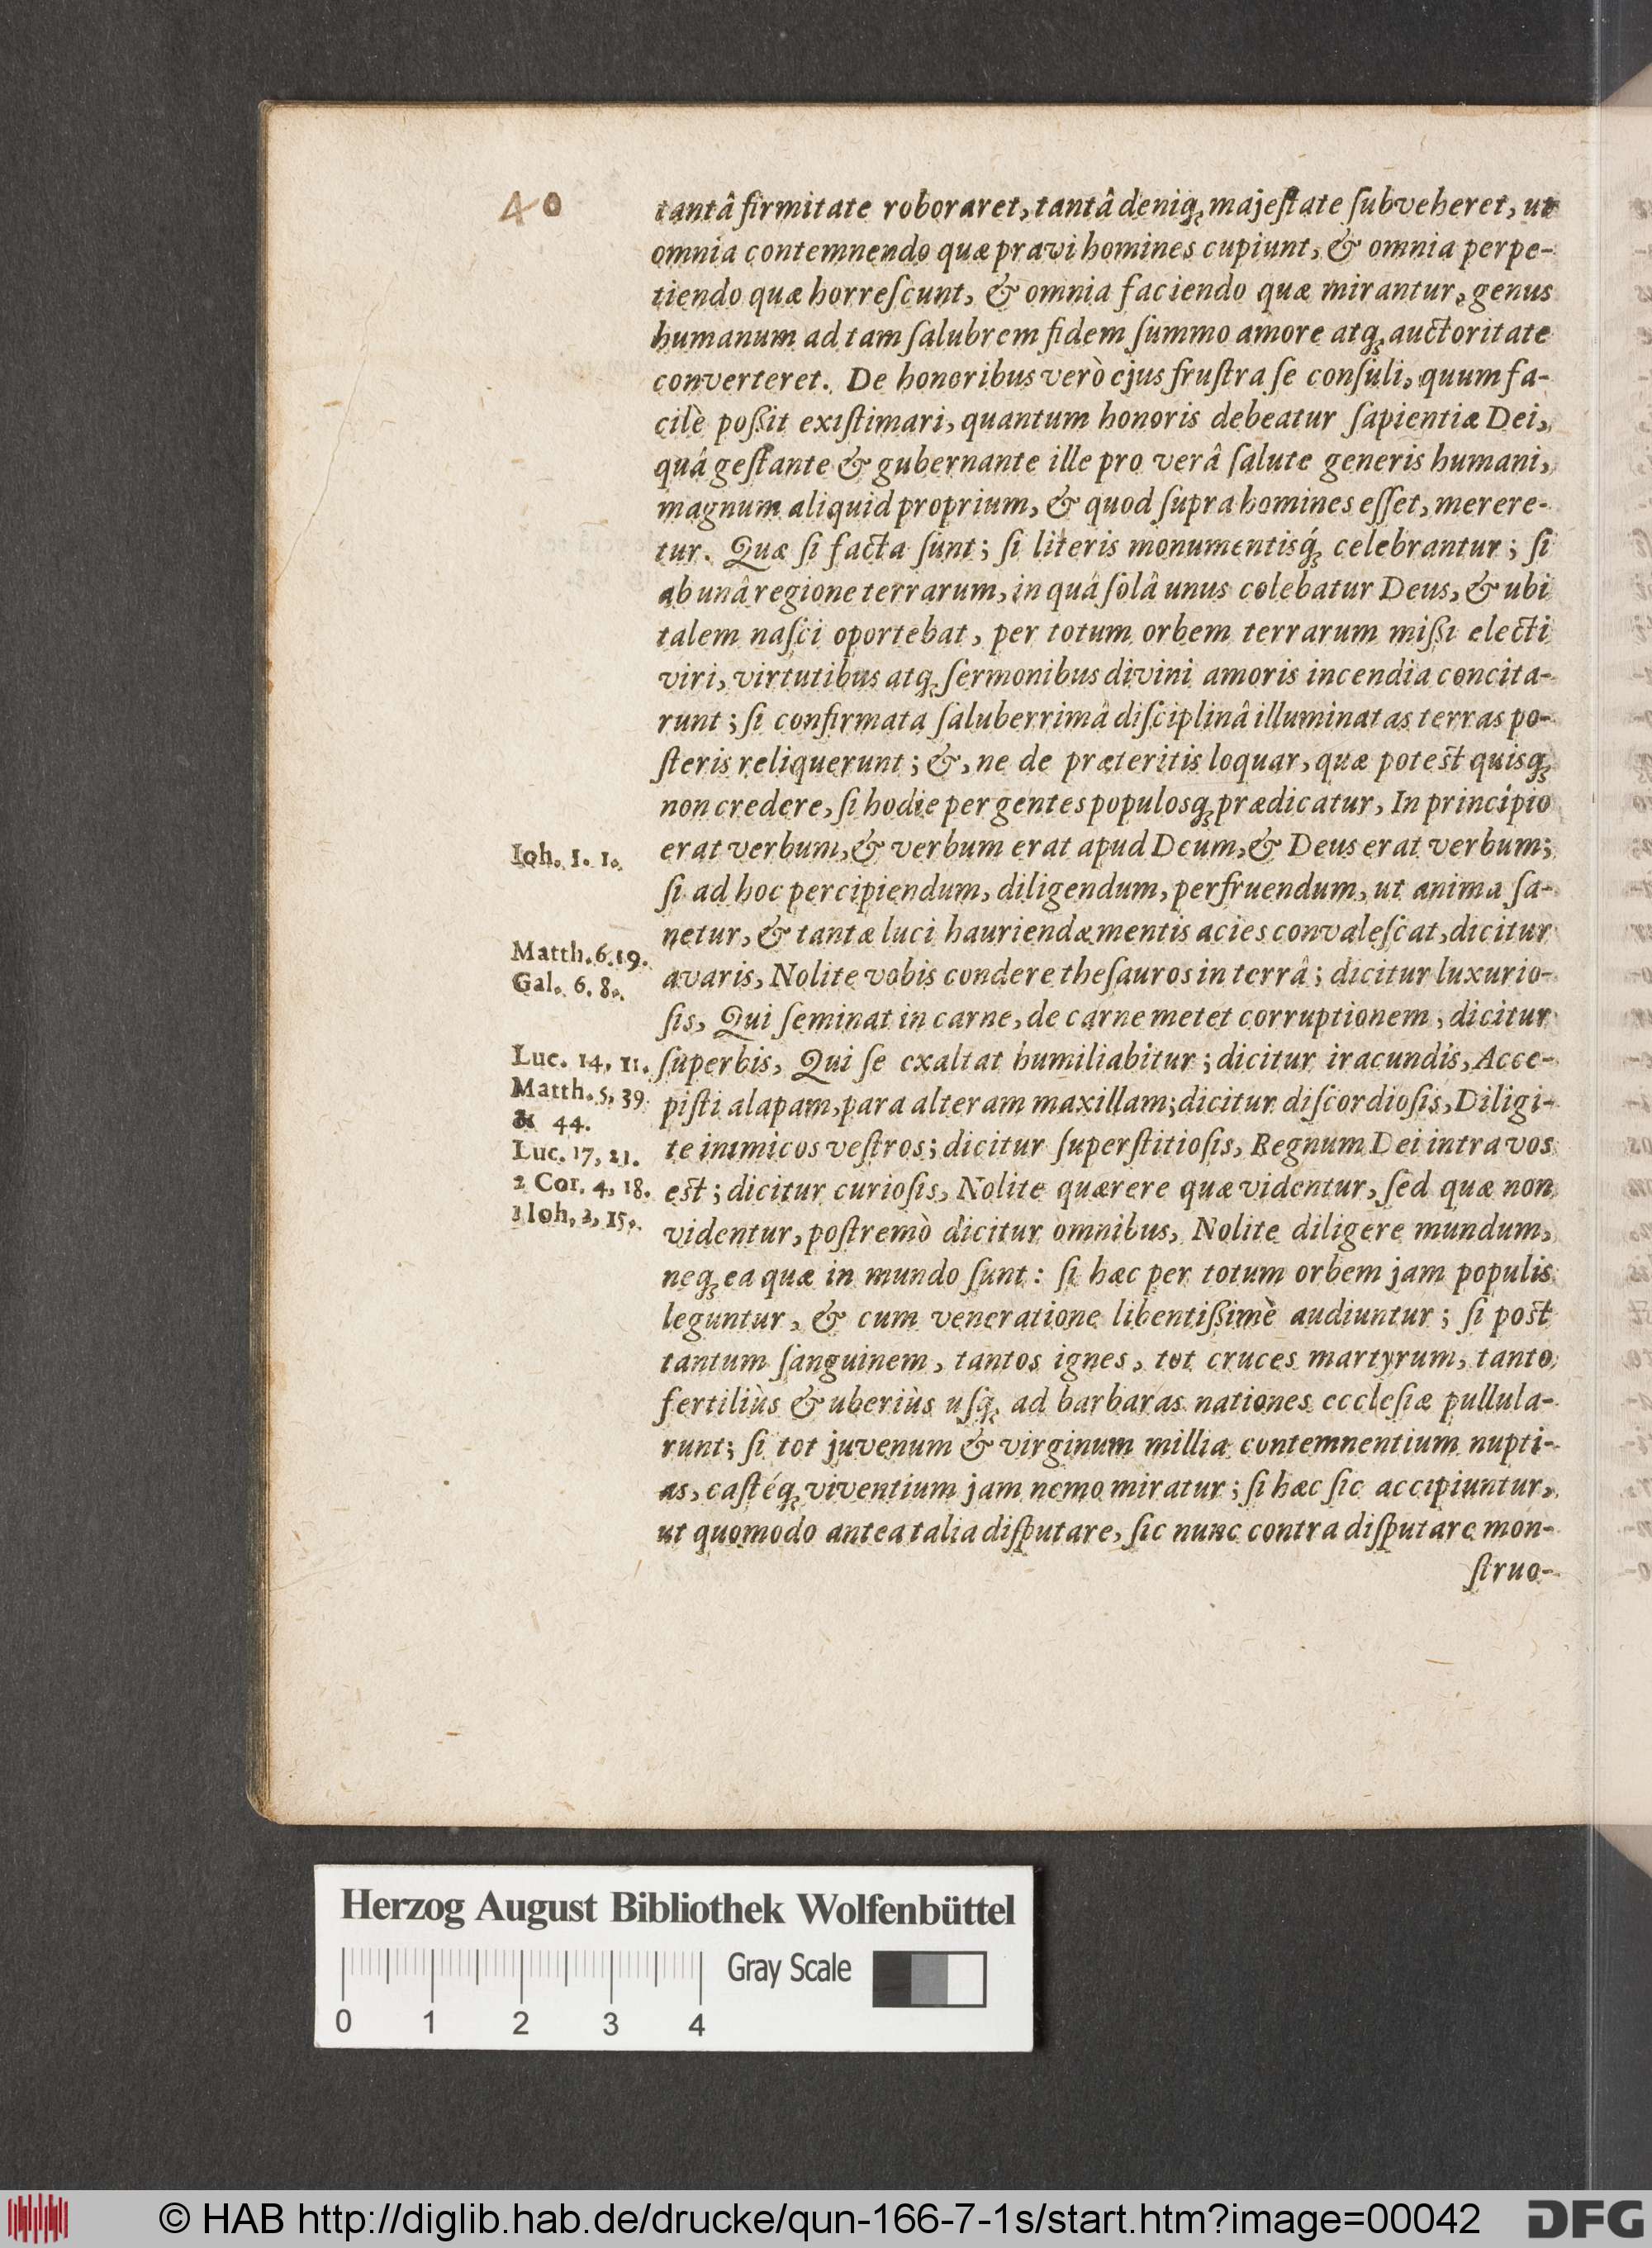 40
tantâ firmitate roboraret, tantâ deniq; majeſtate ſubveheret, ut
omnia contemnendo quæ pravi homines cupiunt, & omnia perpe-
tiendo quæ horreſcunt, & omnia faciendo quæ mirantur, genus
humanum ad tam ſalubrem fidem ſummo amore atq; auctoritate
converteret. De honoribus verò ejus fruſtra ſe conſuli, quum fa-
cilè poßit exiſtimari, quantum honoris debeatur ſapientiæ Dei,
quâ geſtante & gubernante ille pro verâ ſalute generis humani,
magnum aliquid proprium, & quod ſupra homines eſſet, merere-
tur. Quæ ſi facta ſunt; ſi literis monumentisq́; celebrantur; ſi
ab unâ regione terrarum, in quâ ſolâ unus colebatur Deus, & ubi
talem naſci oportebat, per totum orbem terrarum mißi electi
viri, virtutibus atq; ſermonibus divini amoris incendia concita-
runt; ſi confirmata ſaluberrimâ diſciplinâ illuminatas terras po-
ſteris reliquerunt; &, ne de præteritis loquar, quæ potest quisq;
non credere, ſi hodie per gentes populosq; prædicatur, In principio
Ioh. 1. 1. erat verbum, & verbum erat apud Deum, & Deus erat verbum;
ſi ad hoc percipiendum, diligendum, perfruendum, ut anima ſa-
netur, & tantæ luci hauriendæ mentis acies convaleſcat, dicitur
Matth. 6. 19. avaris, Nolite vobis condere theſauros in terrâ; dicitur luxurio-
Gal. 6. 8. ſis, Qui ſeminat in carne, de carne metet corruptionem; dicitur
Luc. 14, 11. ſuperbis, Qui ſe exaltat humiliabitur; dicitur iracundis, Acce-
Matth. 5, 39. piſti alapam, para alteram maxillam; dicitur diſcordioſis, Diligi-
& 44.
Luc. 17, 21. te inimicos veſtros; dicitur ſuperſtitioſis, Regnum Dei intra vos
2 Cor. 4, 18. est; dicitur curioſis, Nolite quærere quæ videntur, ſed quæ non
1 Ioh. 2, 15. videntur, poſtremò dicitur omnibus, Nolite diligere mundum,
neq; ea quæ in mundo ſunt: ſi hæc per totum orbem jam populis
leguntur, & cum veneratione libentißimè audiuntur; ſi post
tantum ſanguinem, tantos ignes, tot cruces martyrum, tanto
fertiliùs & uberiùs uſq; ad barbaras nationes eccleſiæ pullula-
runt; ſi tot juvenum & virginum millia contemnentium nupti-
as, caſtéq; viventium jam nemo miratur; ſi hæc ſic accipiuntur,
ut quomodo antea talia diſputare, ſic nunc contra diſputare mon-
ſtruo-
Herzog August Bibliothek Wolfenbüttel
Gray Scale
0 1 2 3 4
© HAB http://diglib.hab.de/drucke/qun-166-7-1s/start.htm?image=00042
DFG